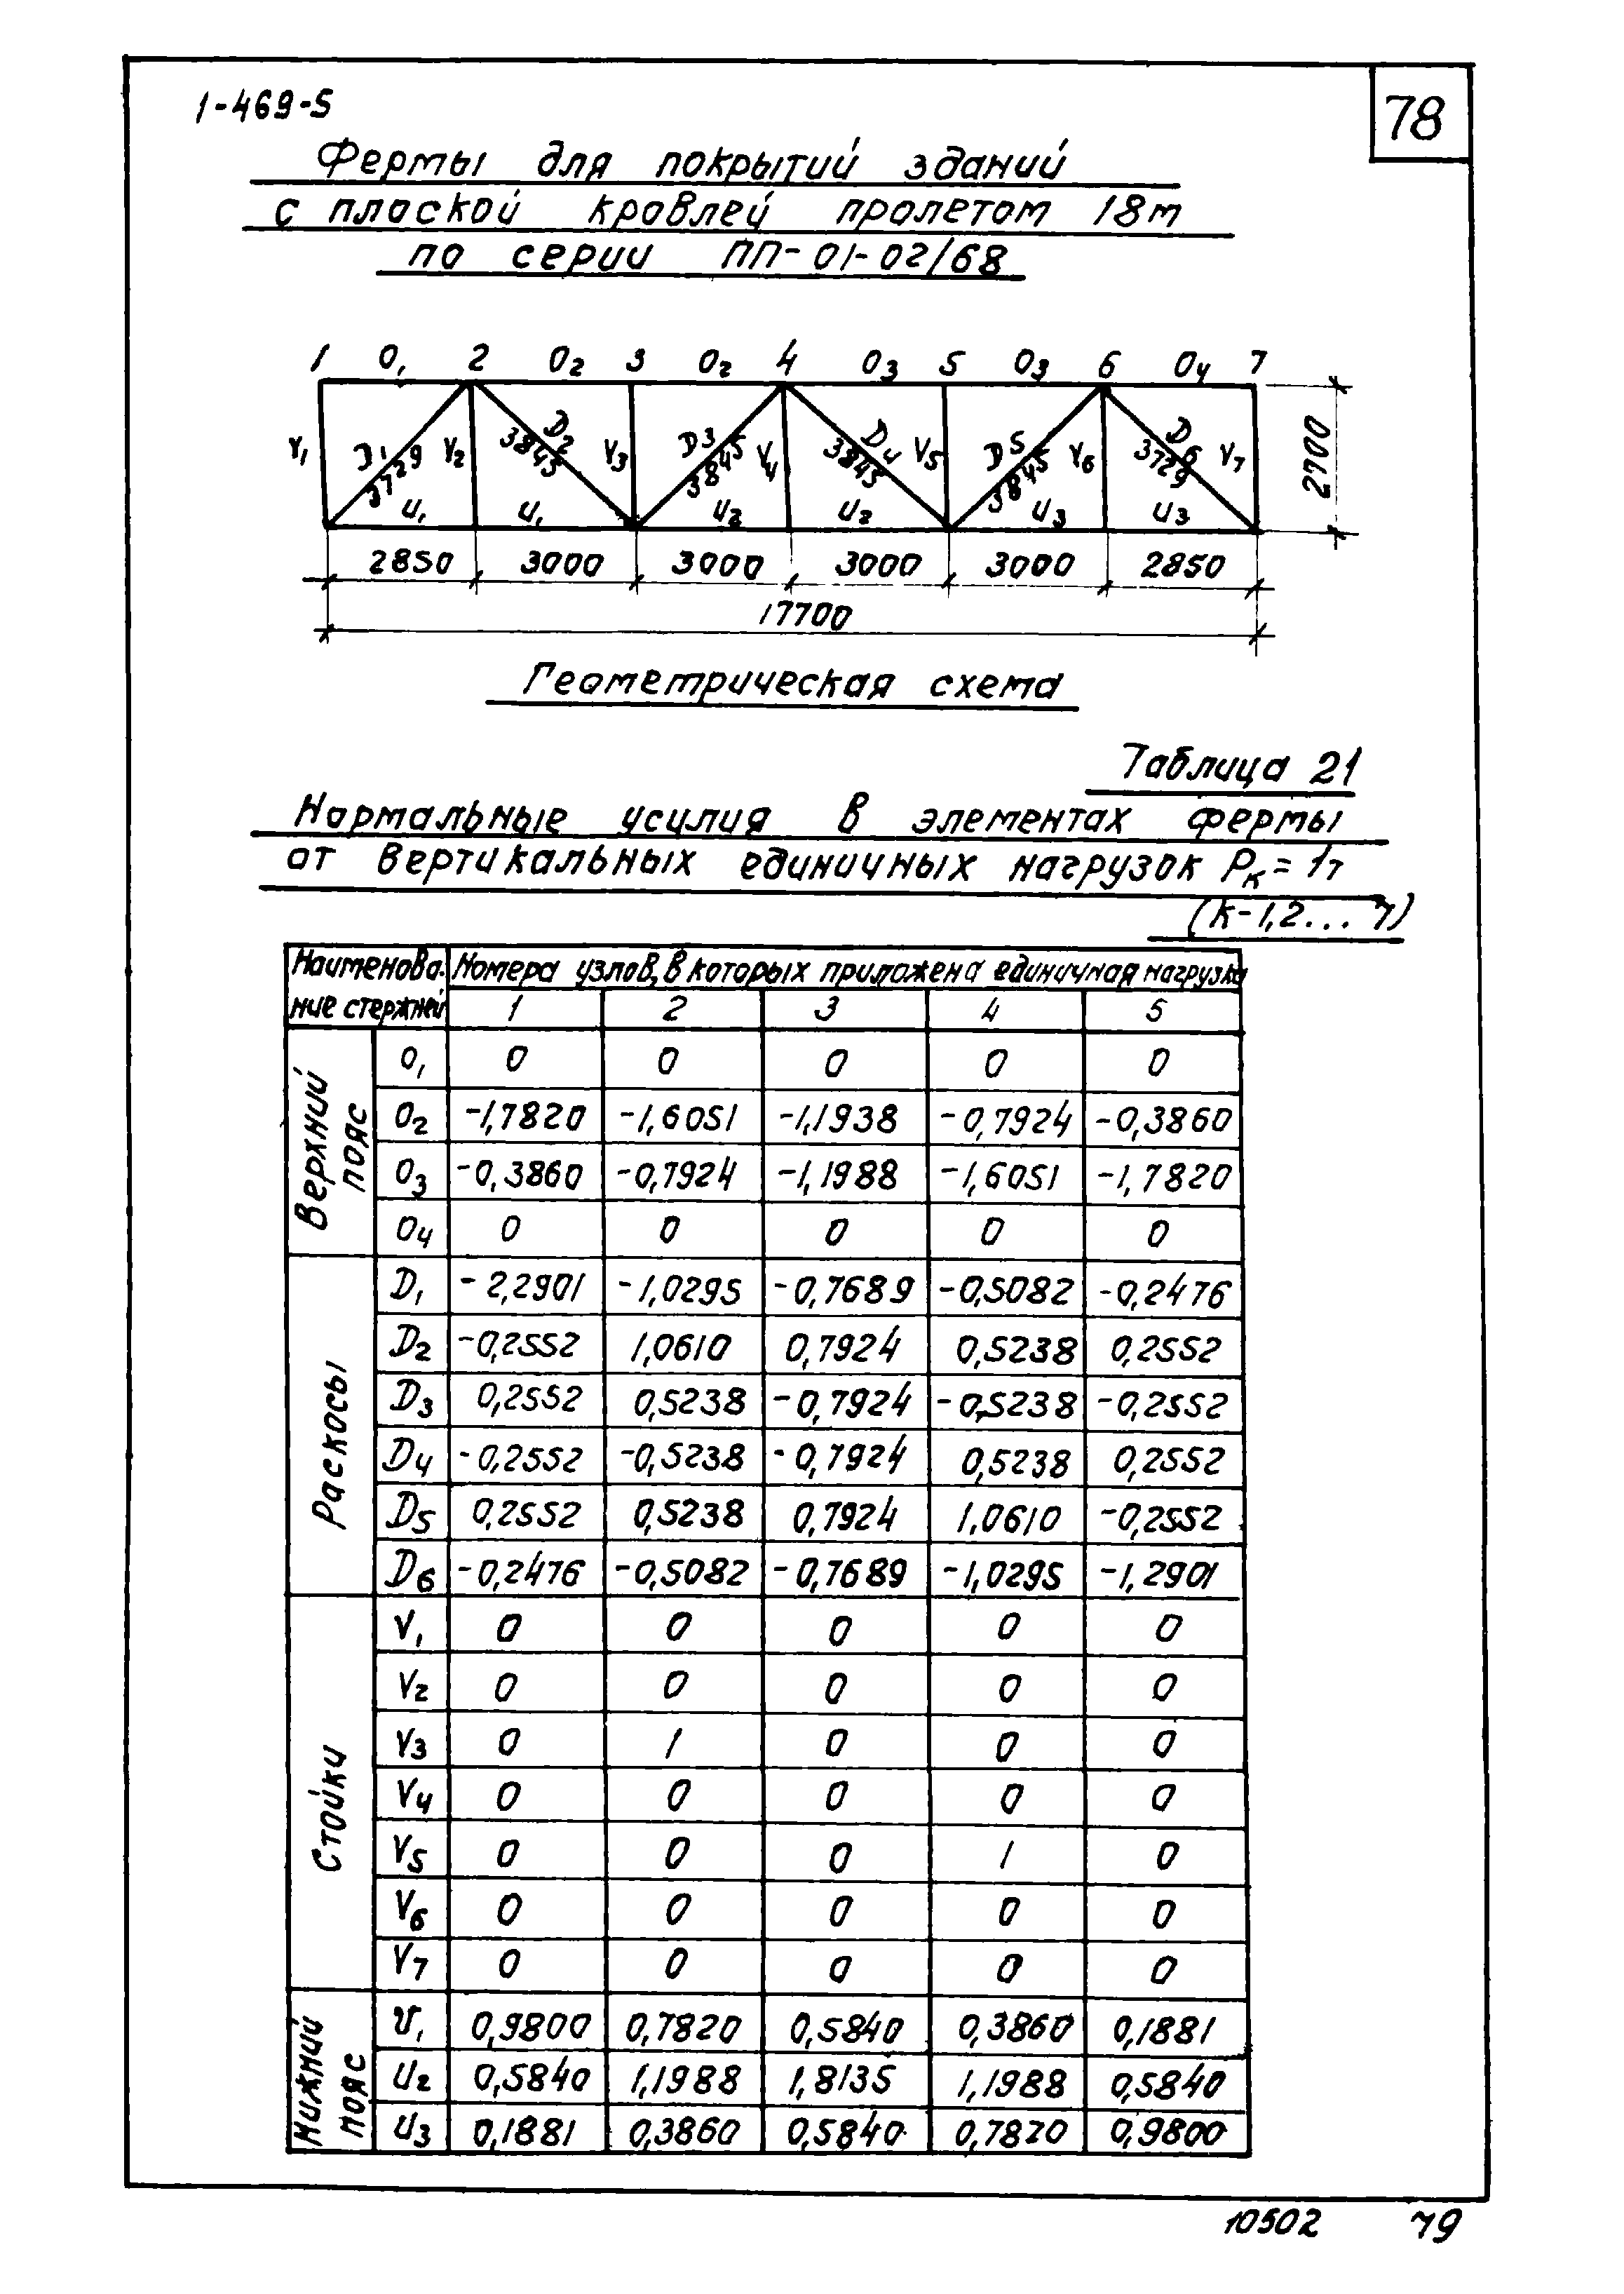 1-469-5
78
Фермы для покрытий зданий
с плоской кровлей пролетом 18м
по серии ПП-01-02/68
1 O₁ 2 O₂ 3 O₂ 4 O₃ 5 O₃ 6 O₄ 7
V₁ D₁ 3729 V₂ D₂ 3845 V₃ D3 3845 V₄ D₄ 3845 V₅ D5 3845 V₆ D6 3729 V₇ 2700
U₁ U₁ U₂ U₂ U₃ U₃
2850 3000 3000 3000 3000 2850
17700
Геометрическая схема
Таблица 21
Нормальные усилия в элементах фермы
от вертикальных единичных нагрузок Pк = 1т
(к-1,2... 7)
Наименова- Номера узлов, в которых приложена единичная нагрузка
ние стержней 1 2 3 4 5
Верхний пояс
O₁ 0 0 0 0 0
O₂ -1,7820 -1,6051 -1,1938 -0,7924 -0,3860
O₃ -0,3860 -0,7924 -1,1988 -1,6051 -1,7820
O₄ 0 0 0 0 0
Раскосы
D₁ -2,2901 -1,0295 -0,7689 -0,5082 -0,2476
D₂ -0,2552 1,0610 0,7924 0,5238 0,2552
D₃ 0,2552 0,5238 -0,7924 -0,5238 -0,2552
D₄ -0,2552 -0,5238 -0,7924 0,5238 0,2552
D₅ 0,2552 0,5238 0,7924 1,0610 -0,2552
D₆ -0,2476 -0,5082 -0,7689 -1,0295 -1,2901
Стойки
V₁ 0 0 0 0 0
V₂ 0 0 0 0 0
V₃ 0 1 0 0 0
V₄ 0 0 0 0 0
V₅ 0 0 0 1 0
V₆ 0 0 0 0 0
V₇ 0 0 0 0 0
Нижний пояс
U₁ 0,9800 0,7820 0,5840 0,3860 0,1881
U₂ 0,5840 1,1988 1,8135 1,1988 0,5840
U₃ 0,1881 0,3860 0,5840 0,7820 0,9800
10502 79